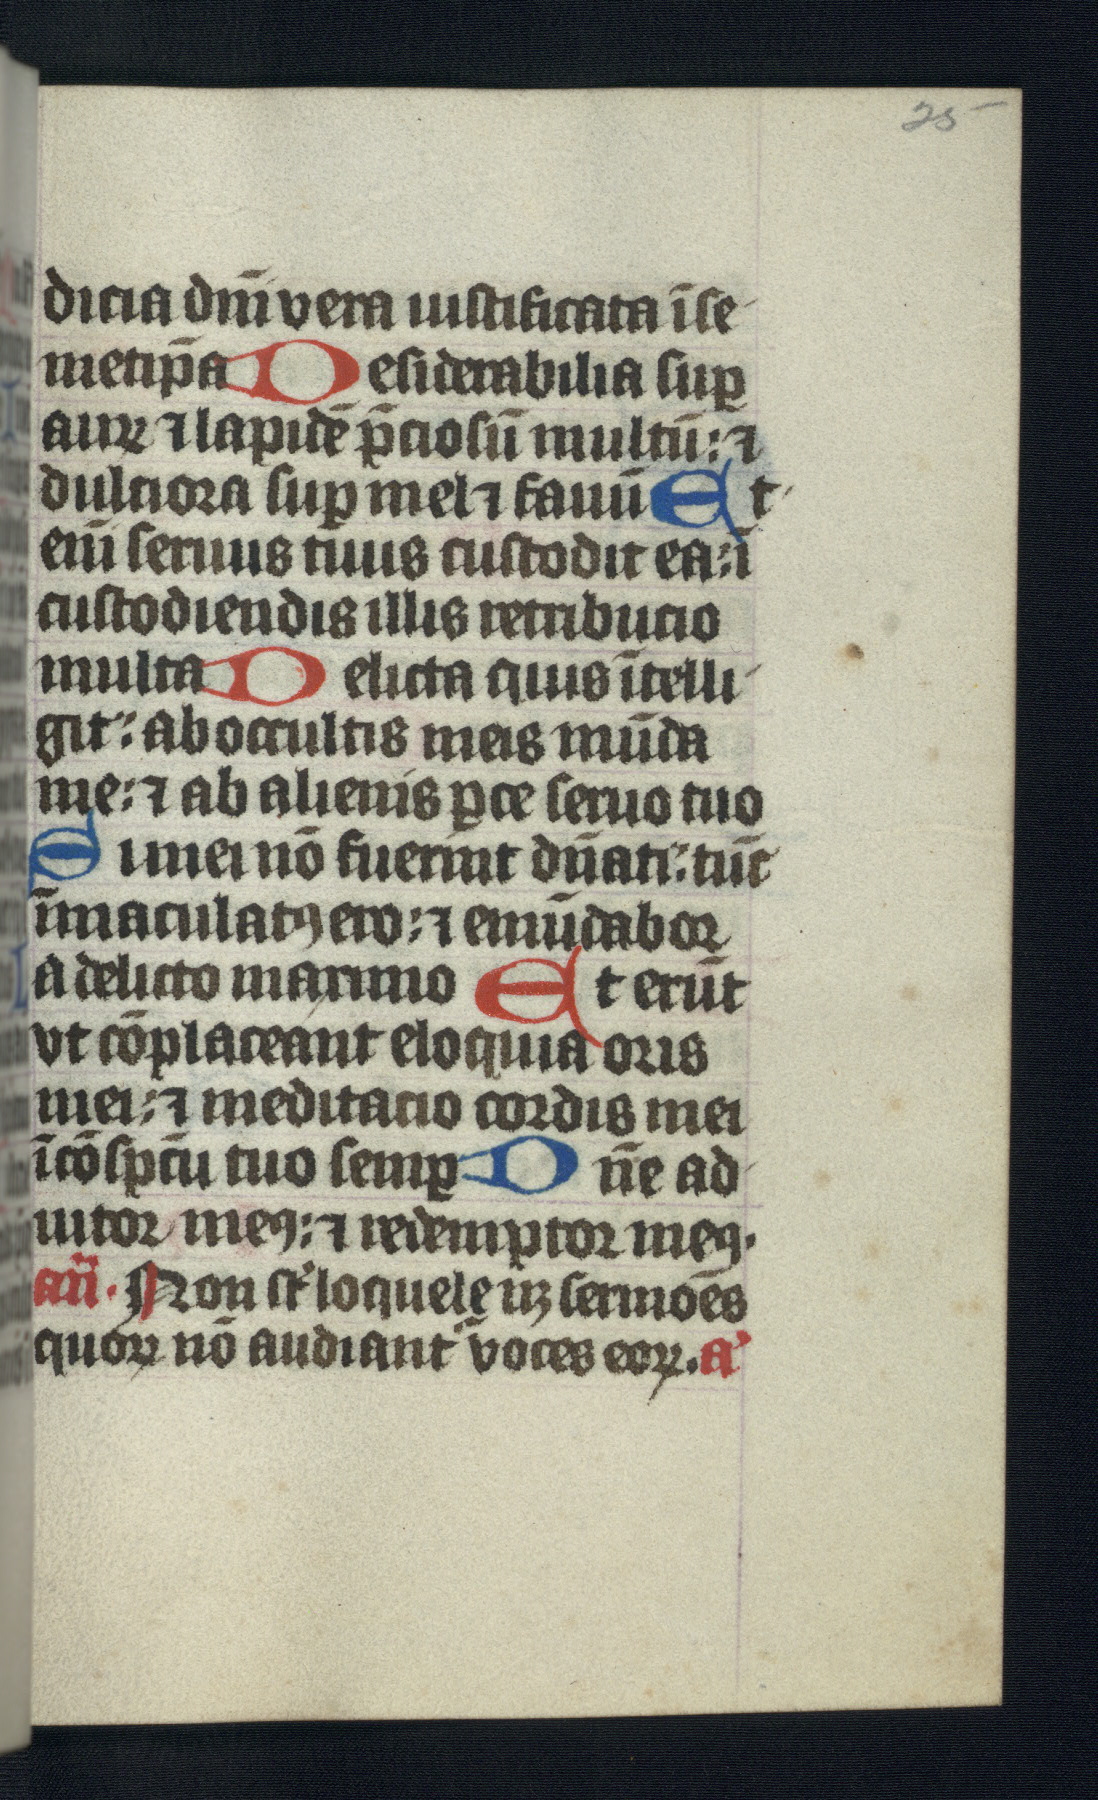 25
dicia dn̄i vera iustificata ī se
metip̄a Desiderabilia suꝑ
auꝝ ⁊ lapidē p̄ciosū multū: ⁊
dulciora suꝑ mel ⁊ fauū Et
eni̅ seruus tuus custodit ea: ī
custodiendis illis retribucio
multa Delicta quis ītelli
git: ab occultis meis mūda
me: ⁊ ab alienis ꝑce seruo tuo
Si mei nō fuerint dn̄ati: tūc
īmaculatꝰ ero: ⁊ emūdabor
a delicto maximo Et erūt
vt cōplaceant eloquia oris
mei: ⁊ meditacio cordis mei
ī cōspc̄tu tuo semꝑ Dn̄e ad
iutor meꝰ: ⁊ redemptor meꝰ.
an̄. Non st̄ loquele nꝫ sermoēs
quoꝝ nō audiant᷑ voces eoꝝ. a᷑